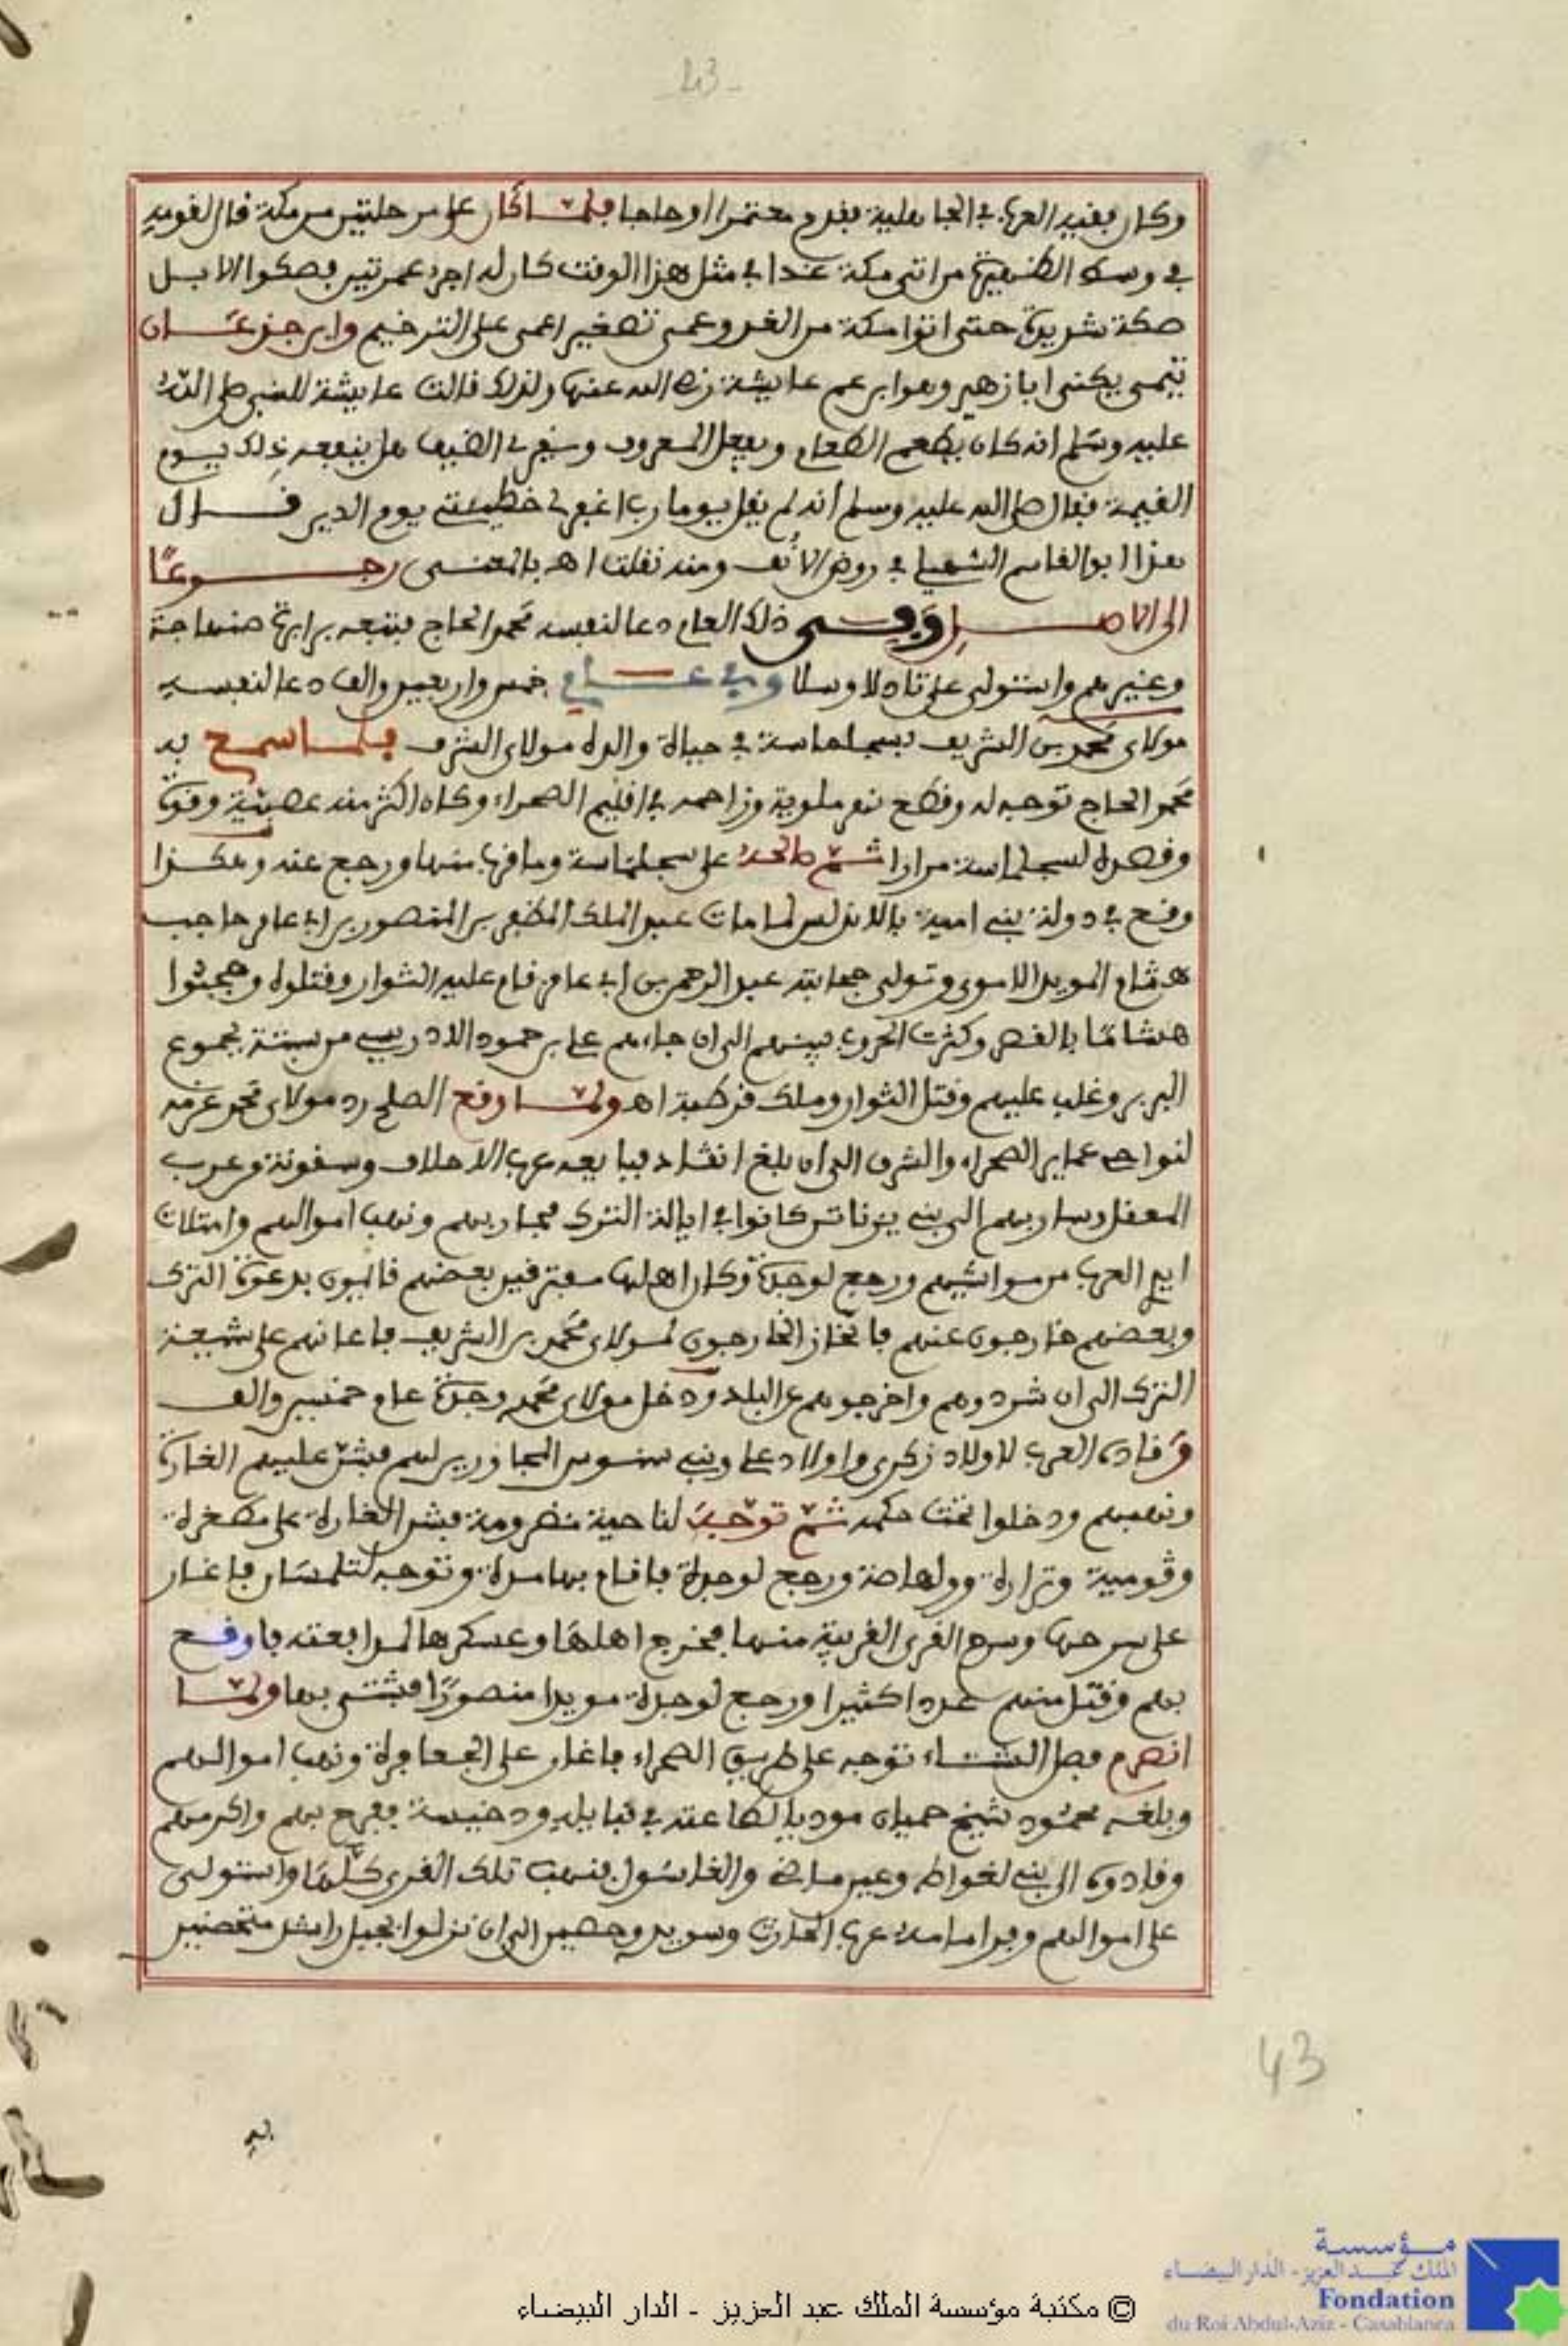 43
وكان فقيه العرب في الجاهلية فقدم معتمرا او حاجا فلما كان على مرحلتين من مكة قال لقومه
في وسط الظهيرة من اتى مكة غدا في مثل هذا الوقت كان له اجر عمرتين فصكوا الابل
صكة شديدة حتى اتوا مكة من الغد وعمى تصغير اعمى على الترخيم وابن جذعان
تيمى يكنى ابا زهير وهو ابن عم عايشة رضي الله عنها ولذلك قالت عايشة للنبي صلى الله
عليه وسلم انه كان يطعم الطعام ويفعل المعروف ويقري الضيف هل ينفعه ذلك يوم
القيمة فقال صلى الله عليه وسلم انه لم يقل يوما رب اغفر لي خطيئتي يوم الدين قال
هذا ابو القاسم السهيلي في روض الأنف ومنه نقلت اهـ بالمعنى رجوعًا
الى الاصل وبقى ذلك العام دعا لنفسه محمد الحاج فتبعه برابرة صنهاجة
وغيرهم واستولى على تادلا وسلا وفي عام خمس واربعين والف دعا لنفسه
مولاي محمد بن الشريف بسجلماسة في حياة والده مولاي الشريف فلما سمع به
محمد الحاج توجه له وقطع نهر ملوية وزاحمه في اقليم الصحراء وكان اكثر منه عصبية وقوة
وقصده لسجلماسة مرارا ثم صالحه على سجلماسة وما قرب منها ورجع عنه وهكذا
وقع في دولة بني امية بالاندلس لما مات عبد الملك المظفر بن المنصور بن ابي عامر حاجب
هشام المويد الاموي وتولى حجابته عبد الرحمن بن ابي عامر قام عليه الثوار وقتلوه وحجبوا
هشامًا بالقصر وكثرت الحروب بينهم الى ان جاءهم على بن حمود الادريسي من سبتة بجموع
البربر وغلب عليهم وقتل الثوار وملك قرطبة اهـ ولما وقع الصلح رد مولاي محمد عزمه
لنواحي عماير الصحراء والشرق الى ان بلغ انقاد فبايعه عرب الاحلاف وسقونة وعرب
المعقل وسار بهم الى بني يزناتن كانوا في ايالة الترك فحاربهم ونهب اموالهم وامتلات
ايدي العرب من مواشيهم ورجع لوجدة وكان اهلها مفترقين بعضهم قايمون بدعوة الترك
وبعضهم خارجون عنهم فانحاز الخارجون لمولاي محمد بن الشريف فاعانهم على شيعة
الترك الى ان شردوهم واخرجوهم عن البلد ودخل مولاي محمد وجدة عام خمسين والف
وقادته العرب لاولاد زكري واولاد على وبني سنوس المجاورين لهم فشن عليهم الغارة
ونهبهم ودخلوا تحت حكمه ثم توجه لناحية ندرومة فشن الغارة على مضغرة
وڭومية وترارة وولهاصة ورجع لوجدة فاقام بها مدة وتوجه لتلمسان فاغار
على سرحها وسرح القرى القريبة منها فخرج اهلها وعسكرها لمدافعته فاوقع
بهم وقتل منهم عددا كثيرا ورجع لوجدة مويدا منصورًا فشتى بها ولما
انصرم فصل الشتاء توجه على طريق الصحراء فاغار على الجعافرة ونهب اموالهم
وبلغه محمود شيخ حميان موديا لطاعته في قبايله ودخيسة ففرح بهم واكرمهم
وقادوه الى بني لغواط وعين ماضي والغاسول فنهب تلك القرى كلها واستولى
على اموالهم وفر امامه عرب الحارث وسويد وحصين الى ان نزلوا بجبل راشد متحصنين
43
© مكتبة مؤسسة الملك عبد العزيز - الدار البيضاء
مؤسسة
الملك عبد العزيز - الدار البيضاء
Fondation
du Roi Abdul-Aziz - Casablanca